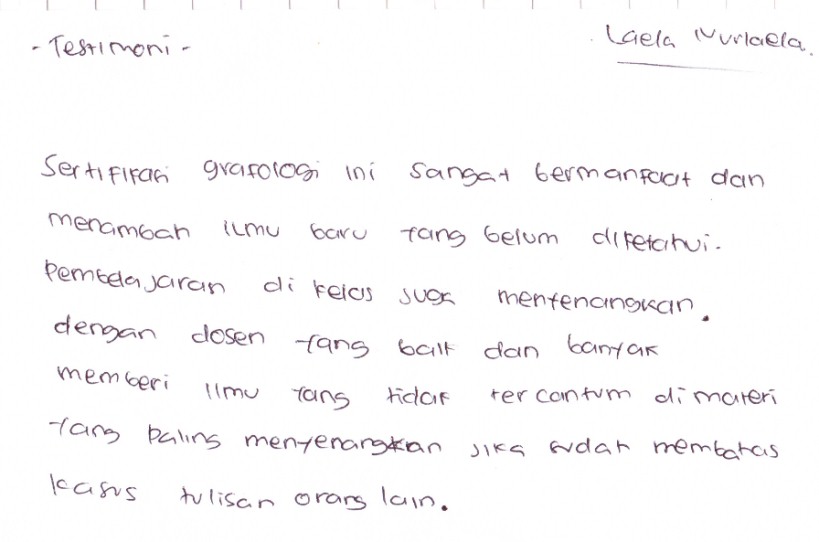 - Testimoni -
Laela Nurlaela.
Sertifikasi grafologi ini sangat bermanfaat dan
menambah ilmu baru yang belum diketahui.
Pembelajaran di kelas juga menyenangkan.
dengan dosen yang baik dan banyak
memberi ilmu yang tidak tercantum di materi
yang paling menyenangkan jika sudah membahas
kasus tulisan orang lain.